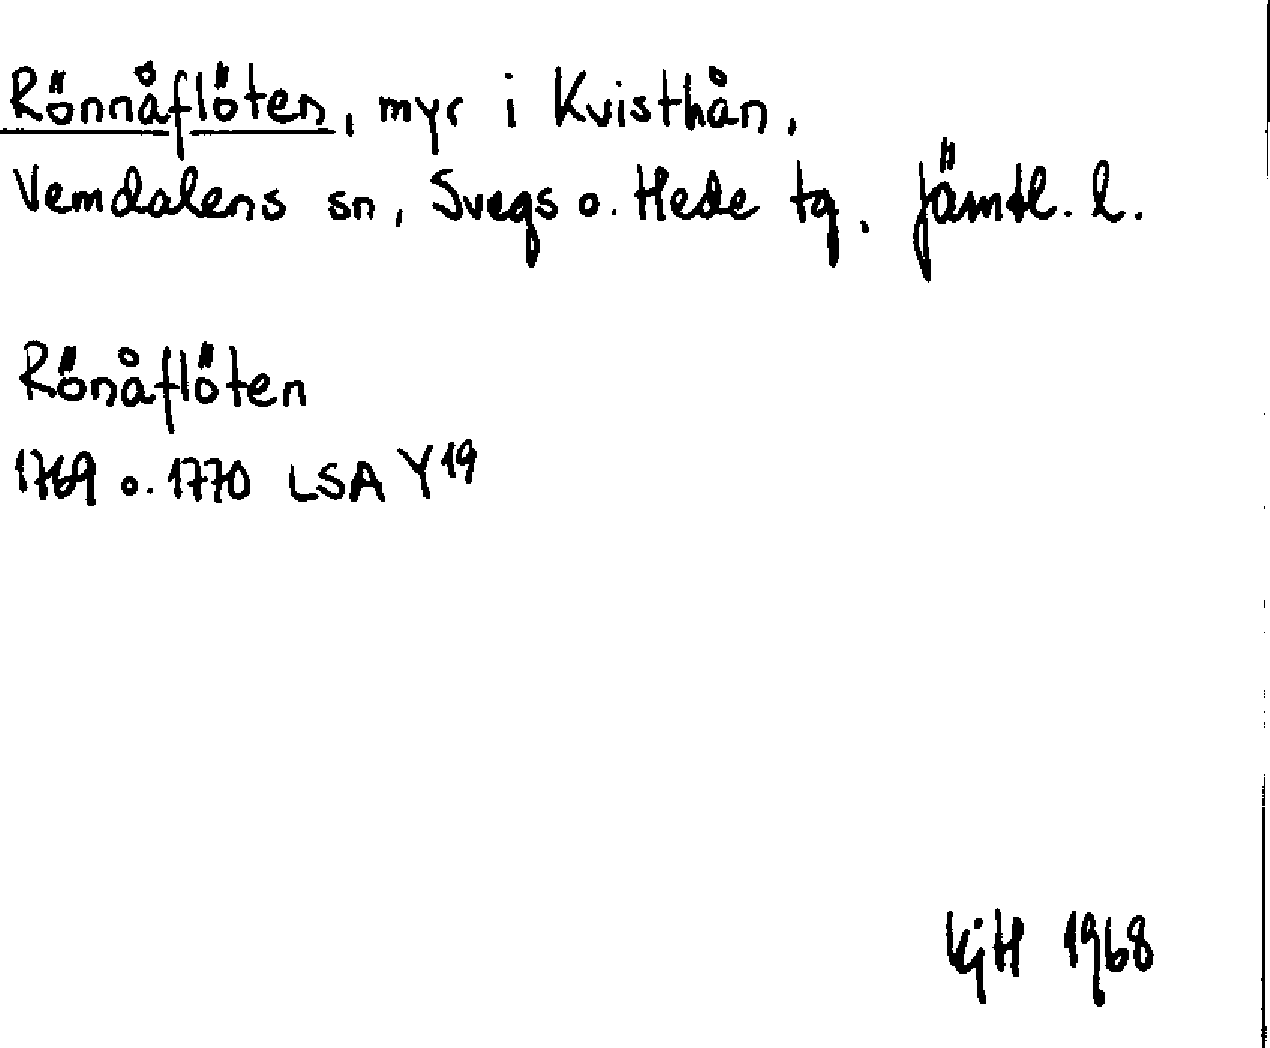 Rönnåflöten, myr i Kvisthån,
Vemdalens sn, Svegs o. Hede tg. Jämtl. l.
Rönåflöten
1769 o. 1770 LSA Y19
KjH 1968